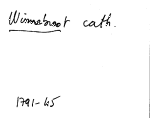 Winnebrost cath.
1791-45